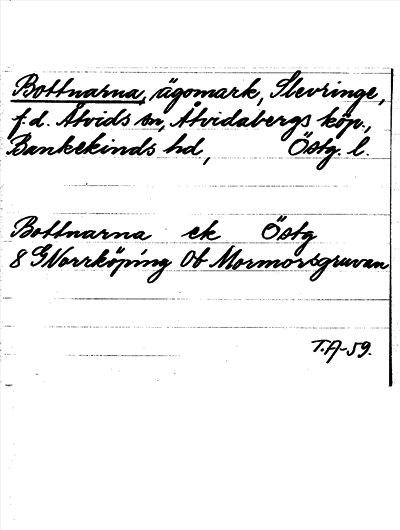 Bottnarna, ägomark, Slevringe,
f.d. Åtvids sn, Åtvidabergs köp.,
Bankekinds hd, Östg. l.
Bottnarna ek Östg
8 G Norrköping 0b Mormorsgruvan
T.A-59.